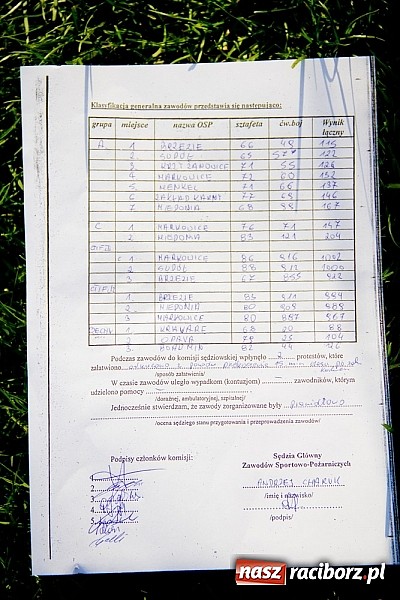 Klasyfikacja generalna zawodów przedstawia się następująco:
grupa miejsce nazwa OSP sztafeta ćw.boj Wynik łączny
A. 1 BRZEZIE 66 49 115
2 SUDÓŁ 65 57 122
3 KRZYŻANOWICE 71 55 126
4 MARKOWICE 72 60 132
5 HENKEL 71 66 137
6 ZAKŁAD KARNY 77 69 146
7 MIEDONIA 68 99 167
C 1 MARKOWICE 76 71 147
2 MIEDONIA 83 121 204
1 MARKOWICE 86 916 1002
2 SUDÓŁ 88 912 1000
3 BRZEZIE 67 855 922
1 BRZEZIE 83 911 994
2 MIEDONIA 80 909 989
3 MARKOWICE 80 887 967
1 KRAVARE 68 20 88
2 OPAVA 79 25 104
3 82 44 126
Podczas zawodów do komisji sędziowskiej wpłynęło 2 protestów, które
załatwiono
/sposób załatwienia/
W czasie zawodów uległo wypadkom (kontuzjom) zawodników, którym
udzielono pomocy
/doraźnej, ambulatoryjnej, szpitalnej/
Jednocześnie stwierdzam, że zawody zorganizowane były prawidłowo
/ocena sędziego stanu przygotowania i przeprowadzenia zawodów/
Podpisy członków komisji:
1.
2.
3.
4.
5.
Sędzia Główny
Zawodów Sportowo-Pożarniczych
ANDRZEJ CHARUK
/imię i nazwisko/
/podpis/
nasz raciborz.pl